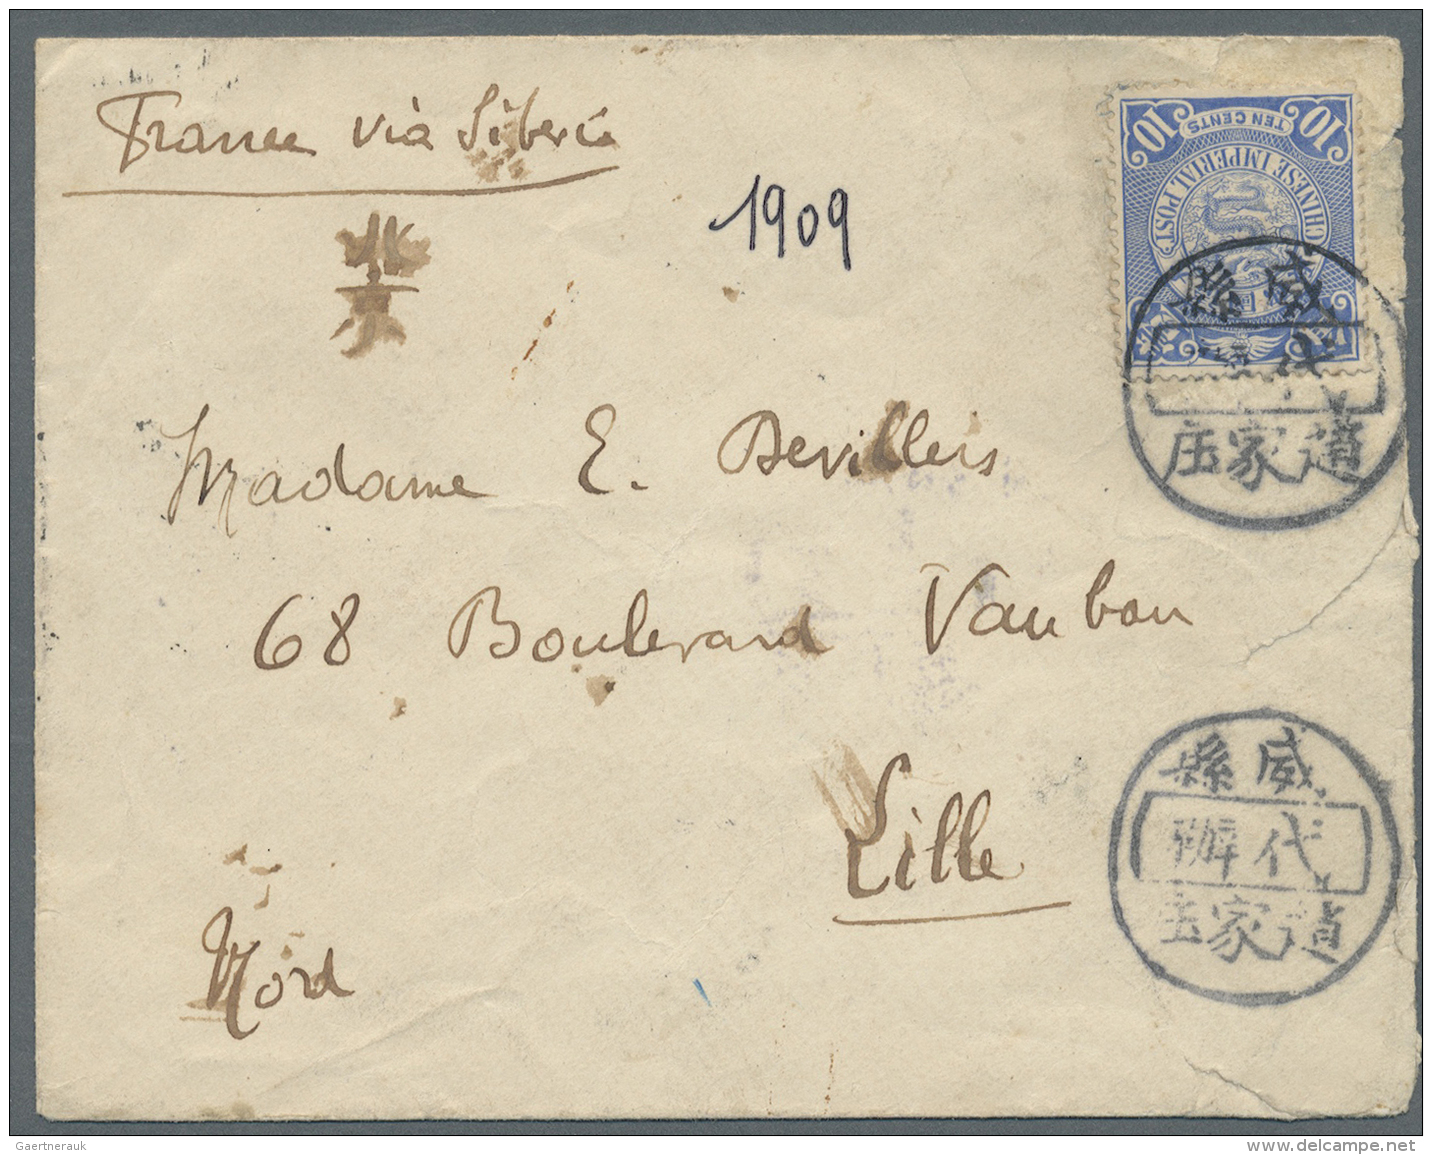 France via Siberie
1909
10 TEN CENTS 10
CHINESE IMPERIAL POST
威縣
代
趙家庄
Madame E. Devillers
68 Boulevard Vauban
Lille
Nord
威縣
代辦
趙家庄
Gaertnerauk
delcampe.net